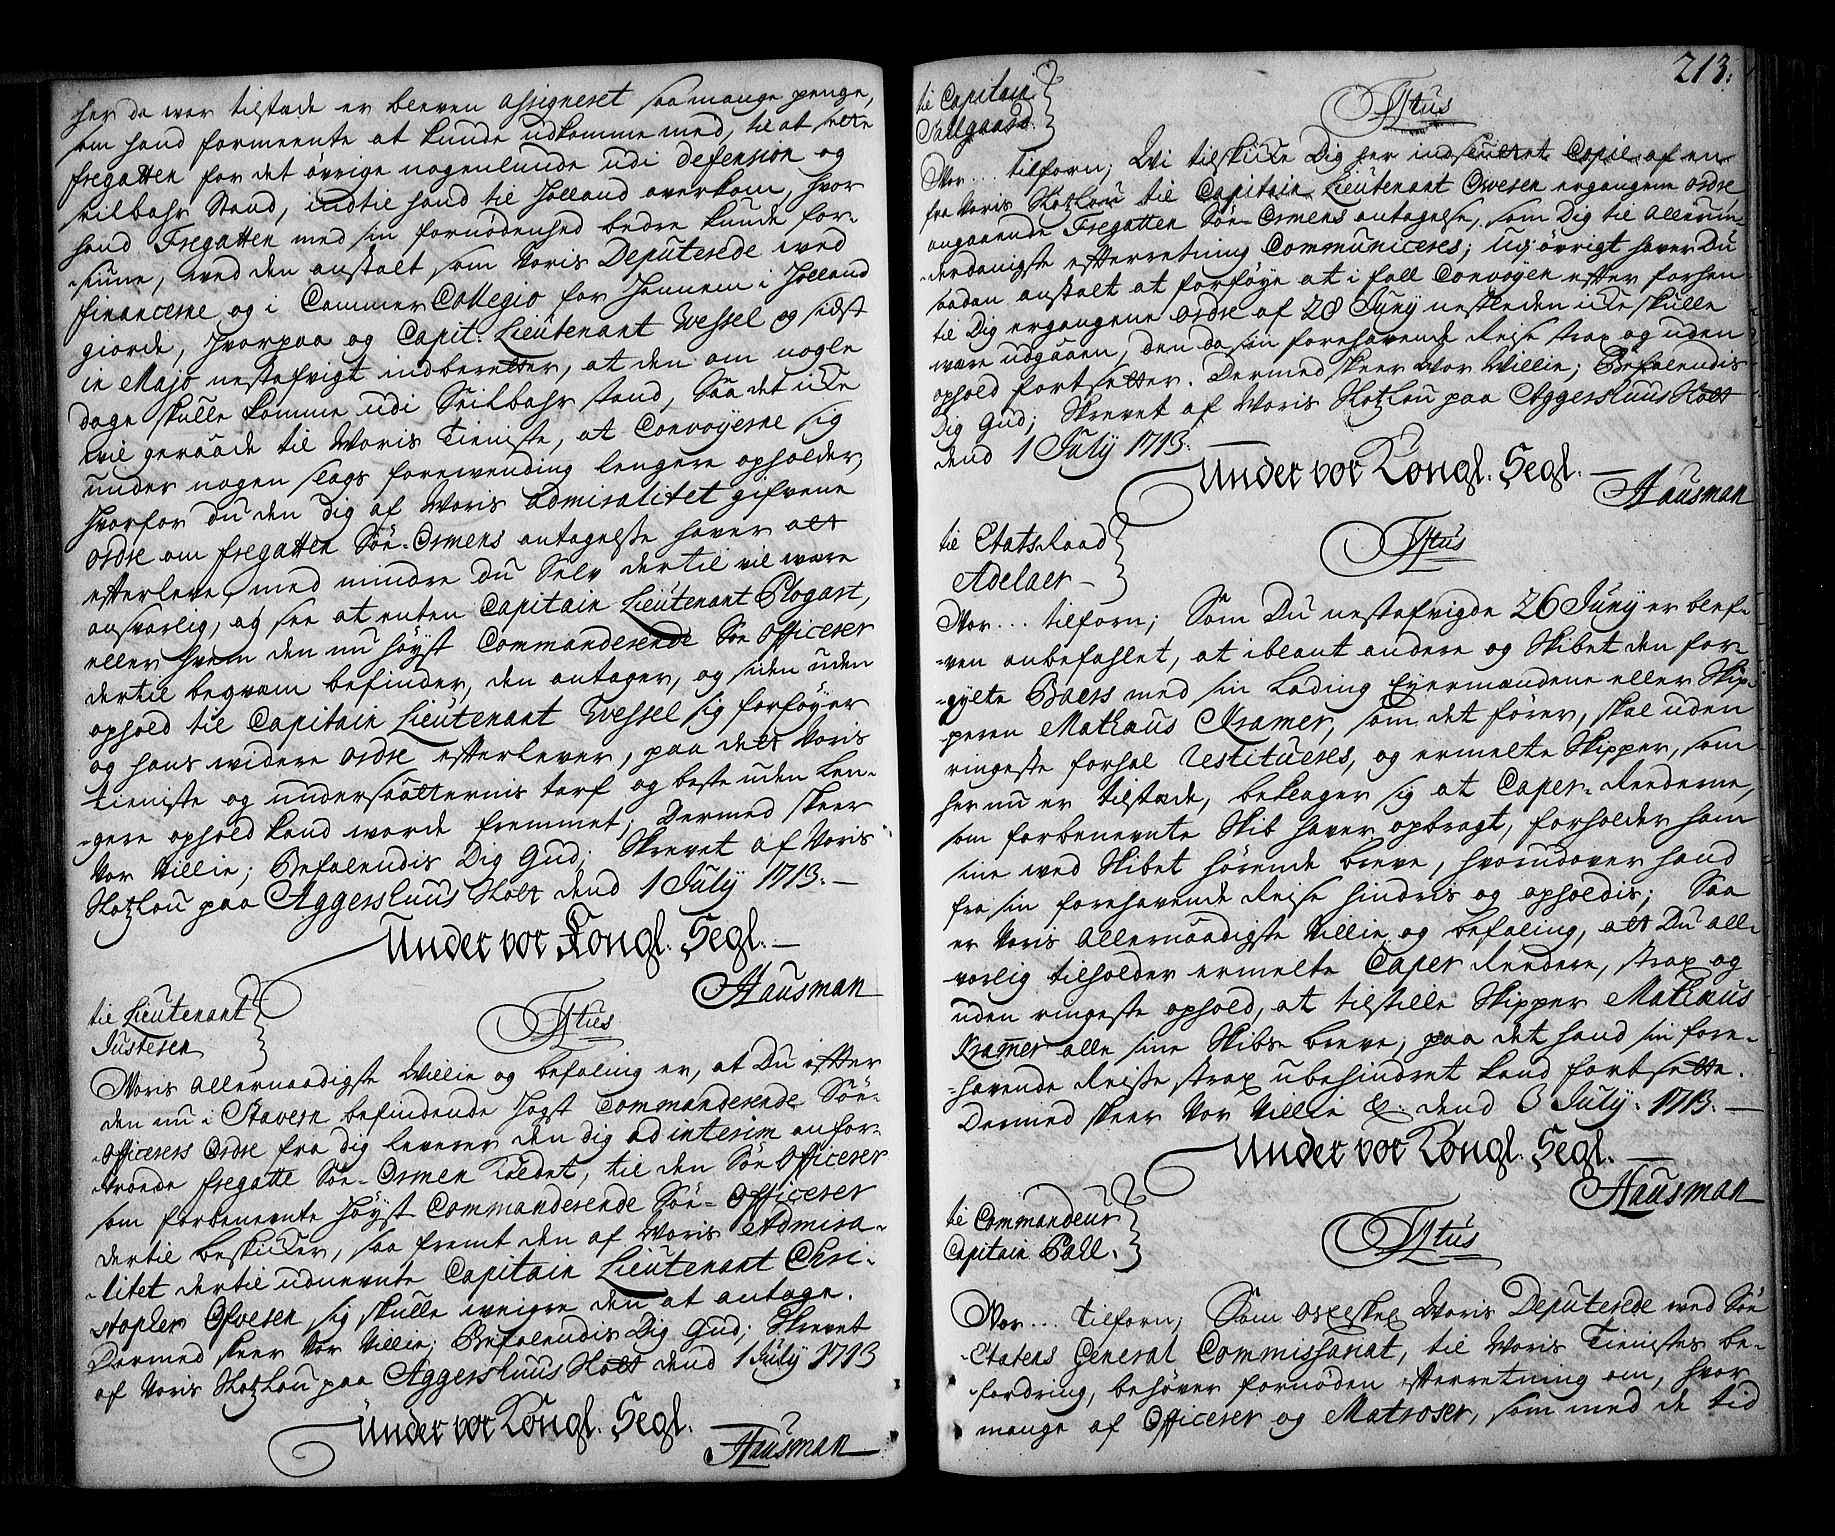 her da wor tilstæde er bleven assigneret saa mange penge,
som hand formeente at kunde udkomme med, til at sette
fregatten for det øvrige nogenlunde udi defension og
seilbahr stand, indtil hand til Holland overkom, hvor
hand Fregatten med sin fornødenhed bedre kunde for-
-siune, ved den anstalt som Voris Deputerede ved
financerne og i Cammer Collegio for hannem i Holland
giorde, hvorpaa og Capit: Lieutenant Wessel og sidst
in Majo nestafvigt indberetter, at den om nogle
dage skulle komme udi Seilbahr stand, Saa det icke
vil geraade til Woris Tieniste, at Convoyerne sig
under nogen slags forewending lengere opholder,
hvorfor du den dig af Woris admiralitet gifvene
ordre om fregatten Søe-Ormens antagelse haver att
efterleve, med mindre du Selv dertil vil være
answarlig, og see at enten Capitain Lieutenant Plogart,
eller hvem den nu høyst Commanderende Søe Officerer
dertil beqvam befinder, den antager, og siden uden
ophold til Capitain Lieutenant Wessel sig forføyer
og hans widere ordre efterlever, paa dett Voris
tieniste og undersaatternis tarf og beste uden len-
-gere ophold kand worde fremmet; Dermed skeer
Vor Villie; Befalendis Dig Gud; Skrevet af Voris
Slotzlou paa Aggershuus Slott dend 1 July 1713. —
Under vor Kongl. Segl. —
Hausman
til Lieutenant
Justesen
Tjtus
Woris Allernaadigste Willie og befaling er, at Du efter
den nu i Stavern befindende høyst Commanderende Søe-
-Officerers Ordre fra dig leverer den dig ad interim anfor-
-troede fregatte Søe-Ormen kaldet, til den Søe Officerer
som forbenevnte høyst Commanderende Søe-Officerer
dertil beskicker, saa fremt den af Woris Admira-
-litet dertil udnevnte Capitain Lieutenant Chri-
stopher Ofvesen sig skulle weigre den at antage.
Dermed skeer Vor Villie; Befalendis Dig Gud; Skrevet
af Voris Slotzlou paa Aggershuus Slott dend 1 July 1713
Under vor Kongl. Segl.
Hausman
213.
til Capitain
Fallgaard.
Tjtus
Wor... tilforn; Wi tilskicke Dig her indsluttet Copie af en
fra Voris Slotzlou til Capitain Lieutenant Owesen ergangene ordre
angaaende Fregatten Søe-Ormens antagelse, som Dig til Allerun-
-derdanigste efterretning Communiceres; Udj øvrigt haver Du
saadan anstalt at forføye at i fall Convoyen efter forhen
til Dig ergangene ordre af 28 Juny nestleden icke skulle
ware udgaaen, den da sin forehavende Reise strax og uden
ophold fortsetter. Dermed skeer Wor Willie; Befalendis
Dig Gud; Skrevet af Woris Slotzlou paa Aggershuus Slott
dend 1 July 1713. —
Under vor Kongl. Segl. —
Hausman
til Etats Raad
Adelaer —
Tjtus
Wor... tilforn; Som Du nestafvigde 26 Juny er blef-
-ven anbefahlet, at iblant andere og Skibet den for-
-gylte Baers med sin Lading Eyermændene eller Skip-
peren Mathæus Kramer, som det fører, skal uden
ringeste forhal Restitueres, og ermelte Skipper, som
her nu er tilstæde, beklager sig at Caper-Reederne,
som forbenevnte Skib haver opbragt, forholder ham
sine ved Skibet hørende breve, hvorudover hand
fra sin forehavende Reise hindris og opholdis; Saa
er Voris Allernaadigste Villie og befaling, att Du all-
-vorlig tilholder ermelte Caper Reedere, strax og
uden ringeste ophold, at tilstille Skipper Mathæus
Kramer alle sine Skibs-breve, paa det hand sin fore-
-havende Reise strax ubehindret kand fortsette.
Dermed skeer Vor Villie &. dend 8 July. 1713. —
Under vor Kongl. Segl. —
Hausman
til Commandeur
Capitain Pall.
Tjtus
Wor... tilforn; Som Woris Deputerede ved Søe
-Etatens General Commissariat, til Woris Tienistes be-
-fordring, behøver fornøden efterretning om, hvor
mange af Officerer og Matroser, som med de tid